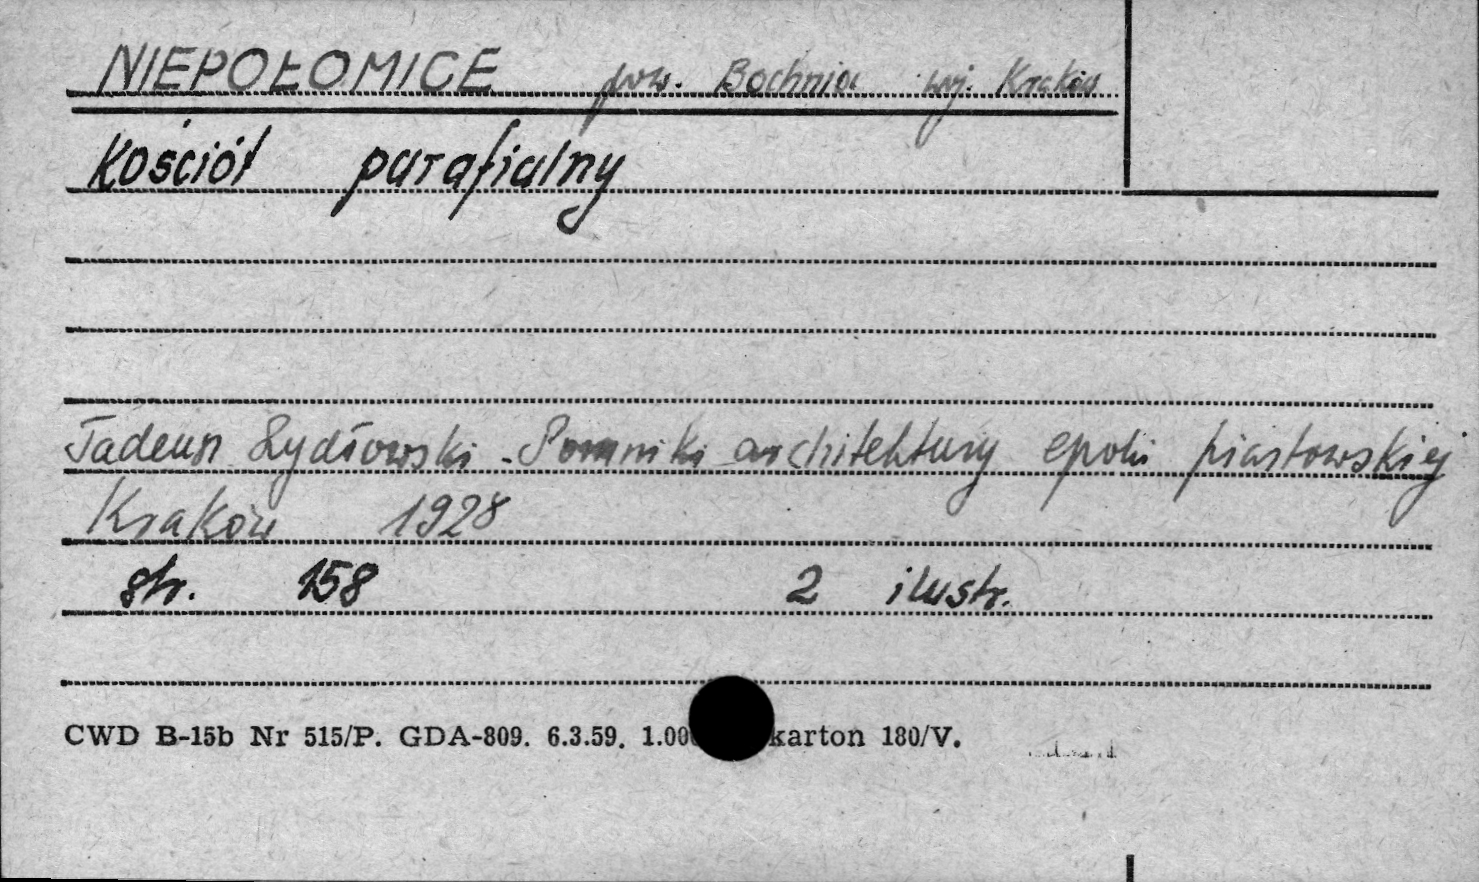 NIEPOŁOMICE pow. Bochnia woj. Kraków
Kościół parafialny
Tadeusz Szydłowski - Pomniki architektury epoki piastowskiej
Kraków 1928
str. 158 2 ilustr.
CWD B-15b Nr 515/P. GDA-809. 6.3.59. 1.00 karton 180/V.